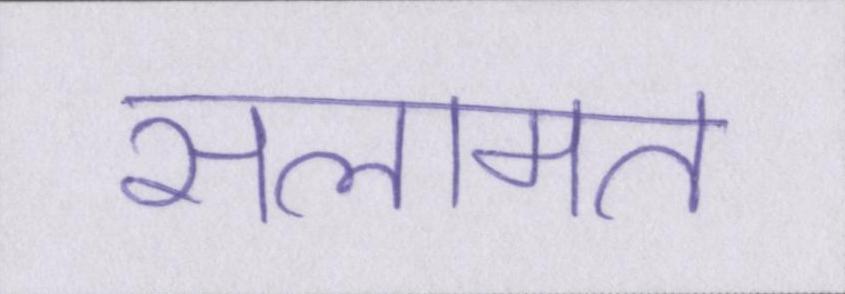 सलामत